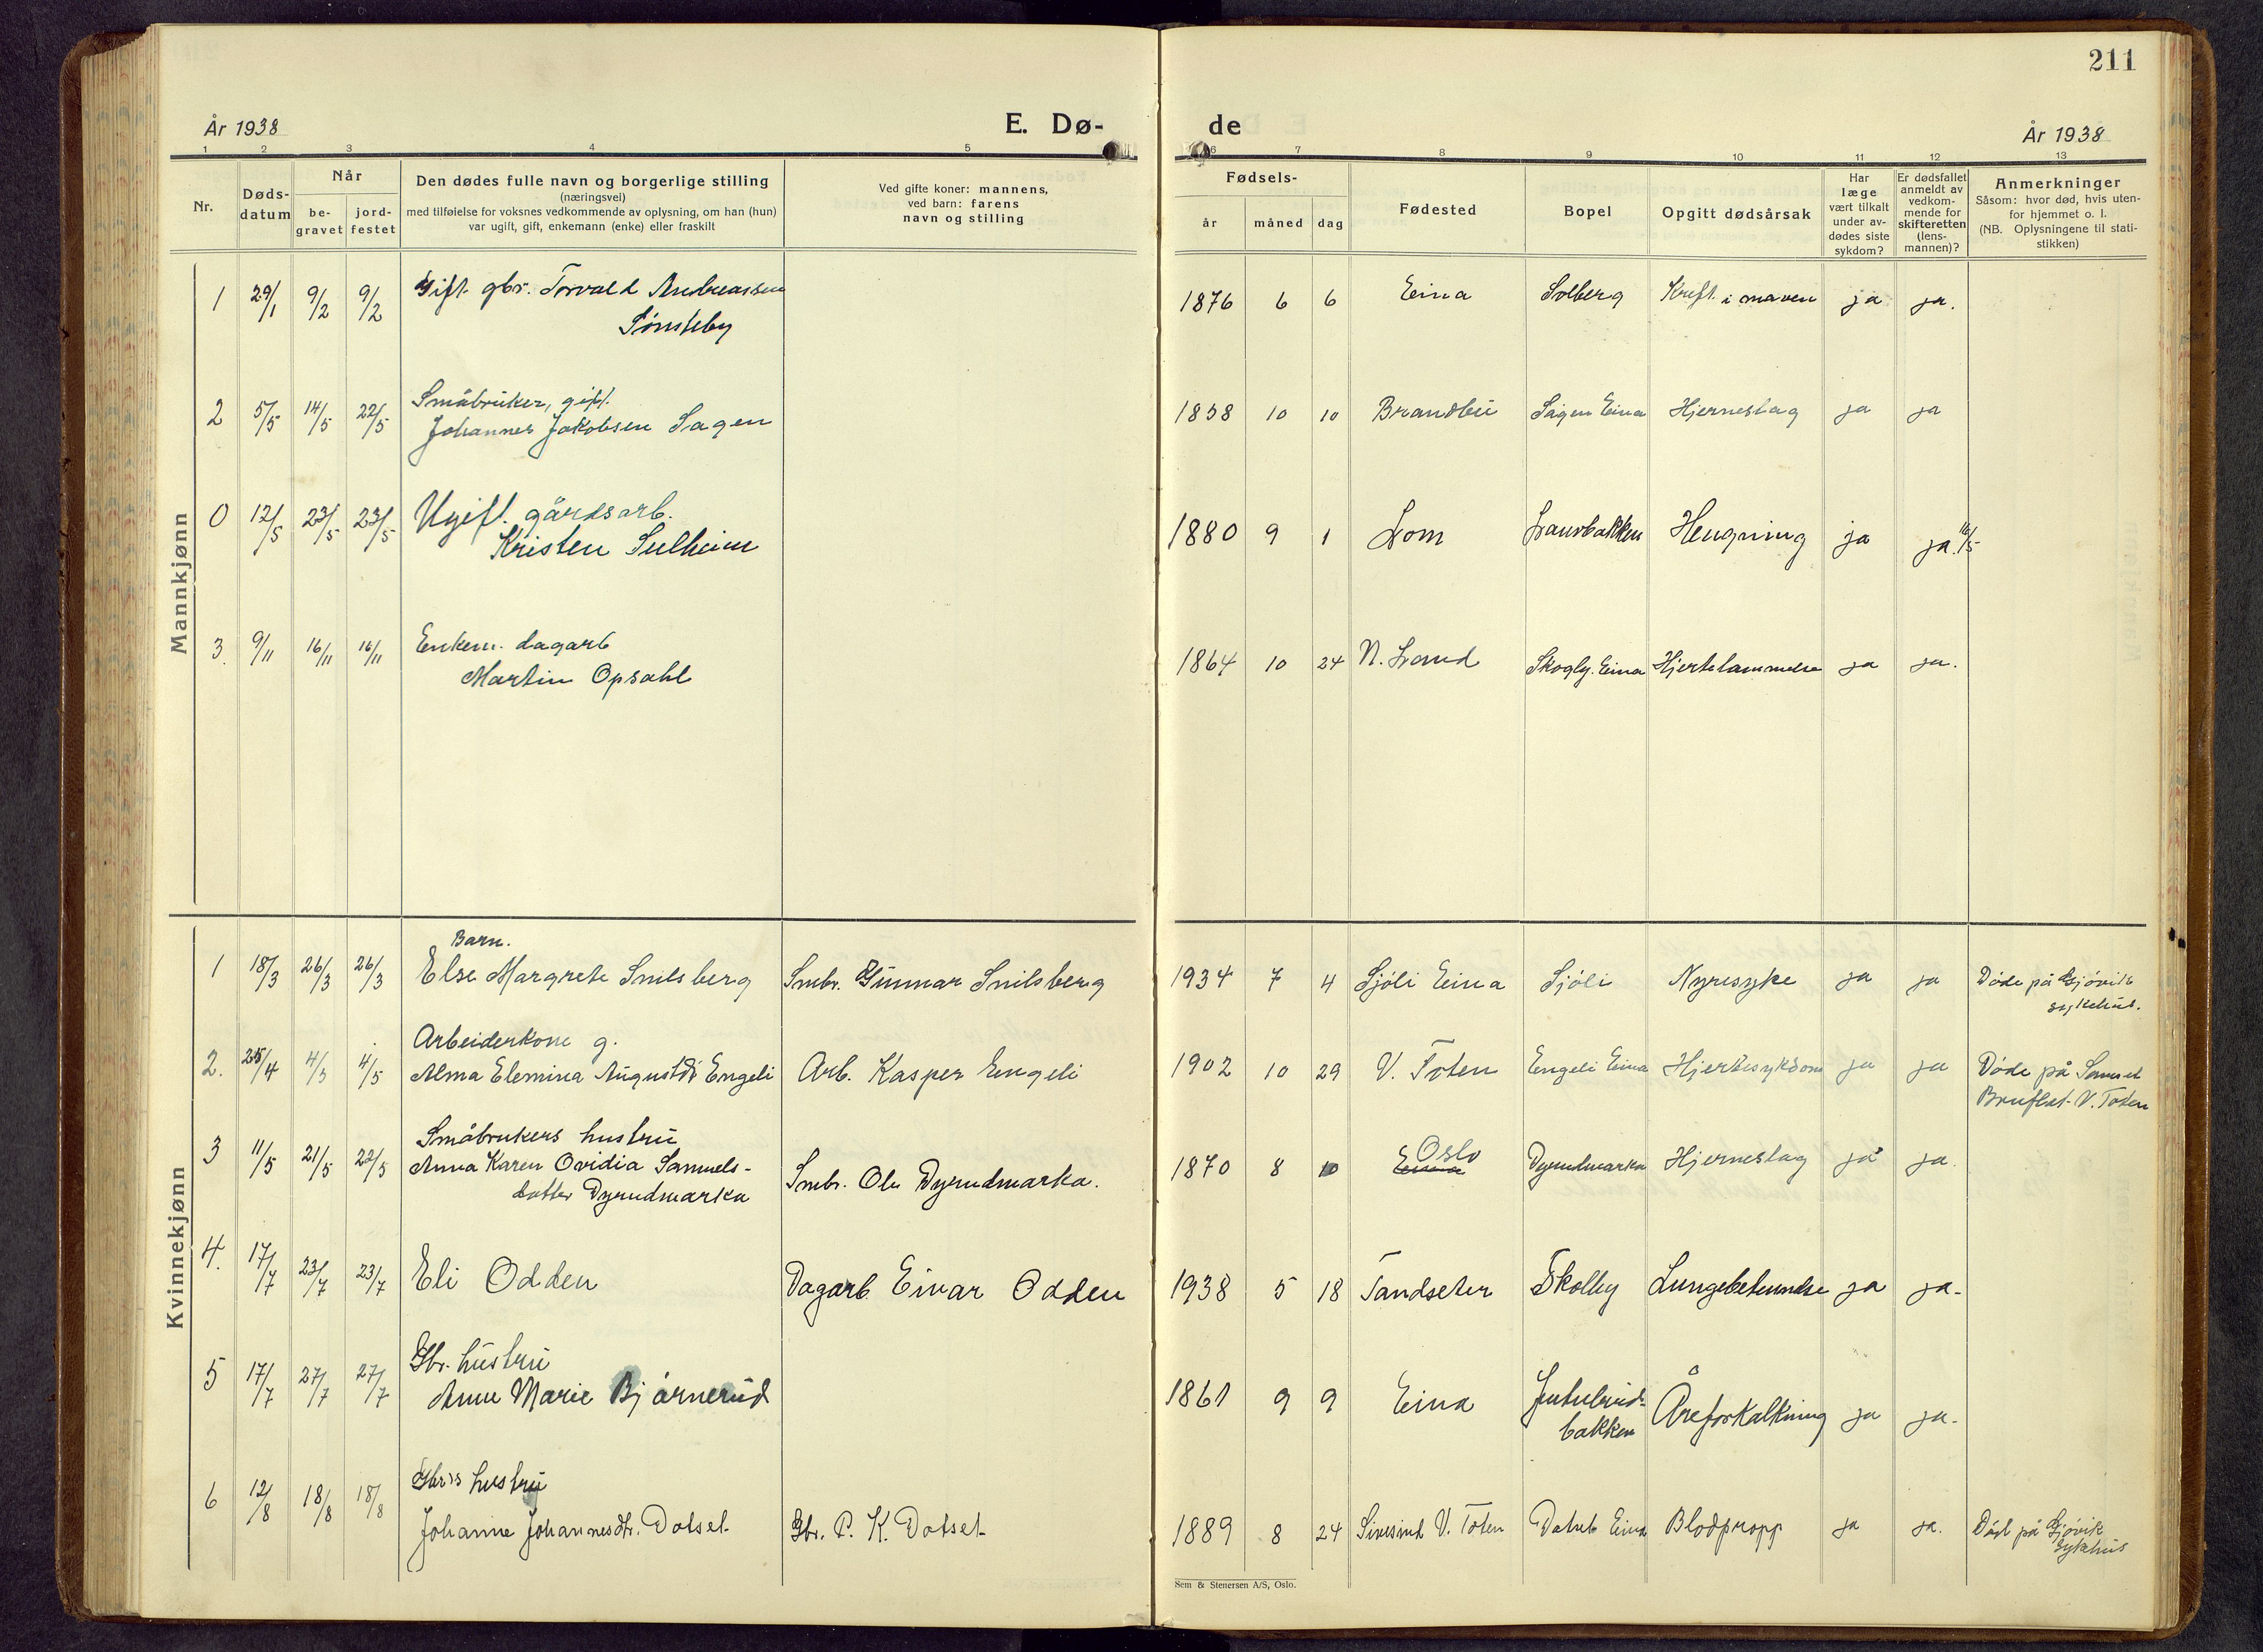 211
År 1938
E. Dø-
de
År 1938
1 2 3 4 5
6 7 8 9 10 11 12 13
Nr.
Døds-
datum
Når
be-
gravet
jord-
festet
Den dødes fulle navn og borgerlige stilling
(næringsvei)
med tilføielse for voksnes vedkommende av oplysning, om han (hun)
var ugift, gift, enkemann (enke) eller fraskilt
Ved gifte koner: mannens,
ved barn: farens
navn og stilling
Fødsels-
år måned dag
Fødested
Bopel
Opgitt dødsårsak
Har
læge
vært tilkalt
under av-
dødes siste
sykdom?
Er dødsfallet
anmeldt av
vedkom-
mende for
skifteretten
(lens-
mannen)?
Anmerkninger
Såsom: hvor død, hvis uten-
for hjemmet o. l.
(NB. Oplysningene til stati-
stikken)
Mannkjønn
1 29/1 9/2 9/2 Gift gbr. Torvald Andreassen
Sønsteby
1876 6 6 Eina Solberg Kreft i maven ja ja.
2 5/5 14/5 22/5 Småbruker, gift.
Johannes Jakobsen Sagen
1858 10 10 Brandbu Sagen Eina Hjerneslag ja ja
0 12/5 23/5 23/5 Ugift gårdsarb.
Kristen Sulheim
1880 9 1 Lom Hengning ja ja. 16/5
3. 9/11 16/11 16/11 Enkem. dagarb
Martin Opsahl
1864 10 24 N. Land Skogly. Eina Hjertelammelse ja ja.
Kvinnekjønn
Barn.
1 18/3 26/3 26/3 Else Margrete Snilsberg Smbr. Gunnar Snilsberg
1934 7 4 Sjøli Eina Sjøli Nyresyke ja ja Døde på Gjøvik
sykehus.
Arbeiderkone g.
2. 25/4 4/5 4/5 Alma Elemina Augustdtr Engeli Arb. Kasper Engeli
1902 10 29 V. Toten Engeli Eina Hjertesykdom ja ja Døde på
Bruflat V. Toten
Småbrukers hustru
3 11/5 21/5 22/5 Anna Karen Ovidia Samuels-
datter Dyrudmarka Smbr. Ole Dyrudmarka.
1870 8 10 Oslo Dyrudmarka Hjerneslag ja ja.
4. 17/7 23/7 23/7 Eli Odden Dagarb Einar Odden
1938 5 18 Tandseter Skolby Lungebetennelse ja ja-
Gbr. hustru
5 17/7 27/7 27/7 Anne Marie Bjørnerud
1861 9 9 Eina Jutulrud-
bakken Åreforkalkning ja ja-
Gbr's hustru
6 12/8 18/8 18/8
Johanne Johannesdtr. Dotset Gbr. P. K. Dotset
1889 8 24 Sivesind V. Toten Dotset Eina Blodpropp ja ja. Død på Gjøvik
Sykehus
Sem & Stenersen A/S, Oslo.